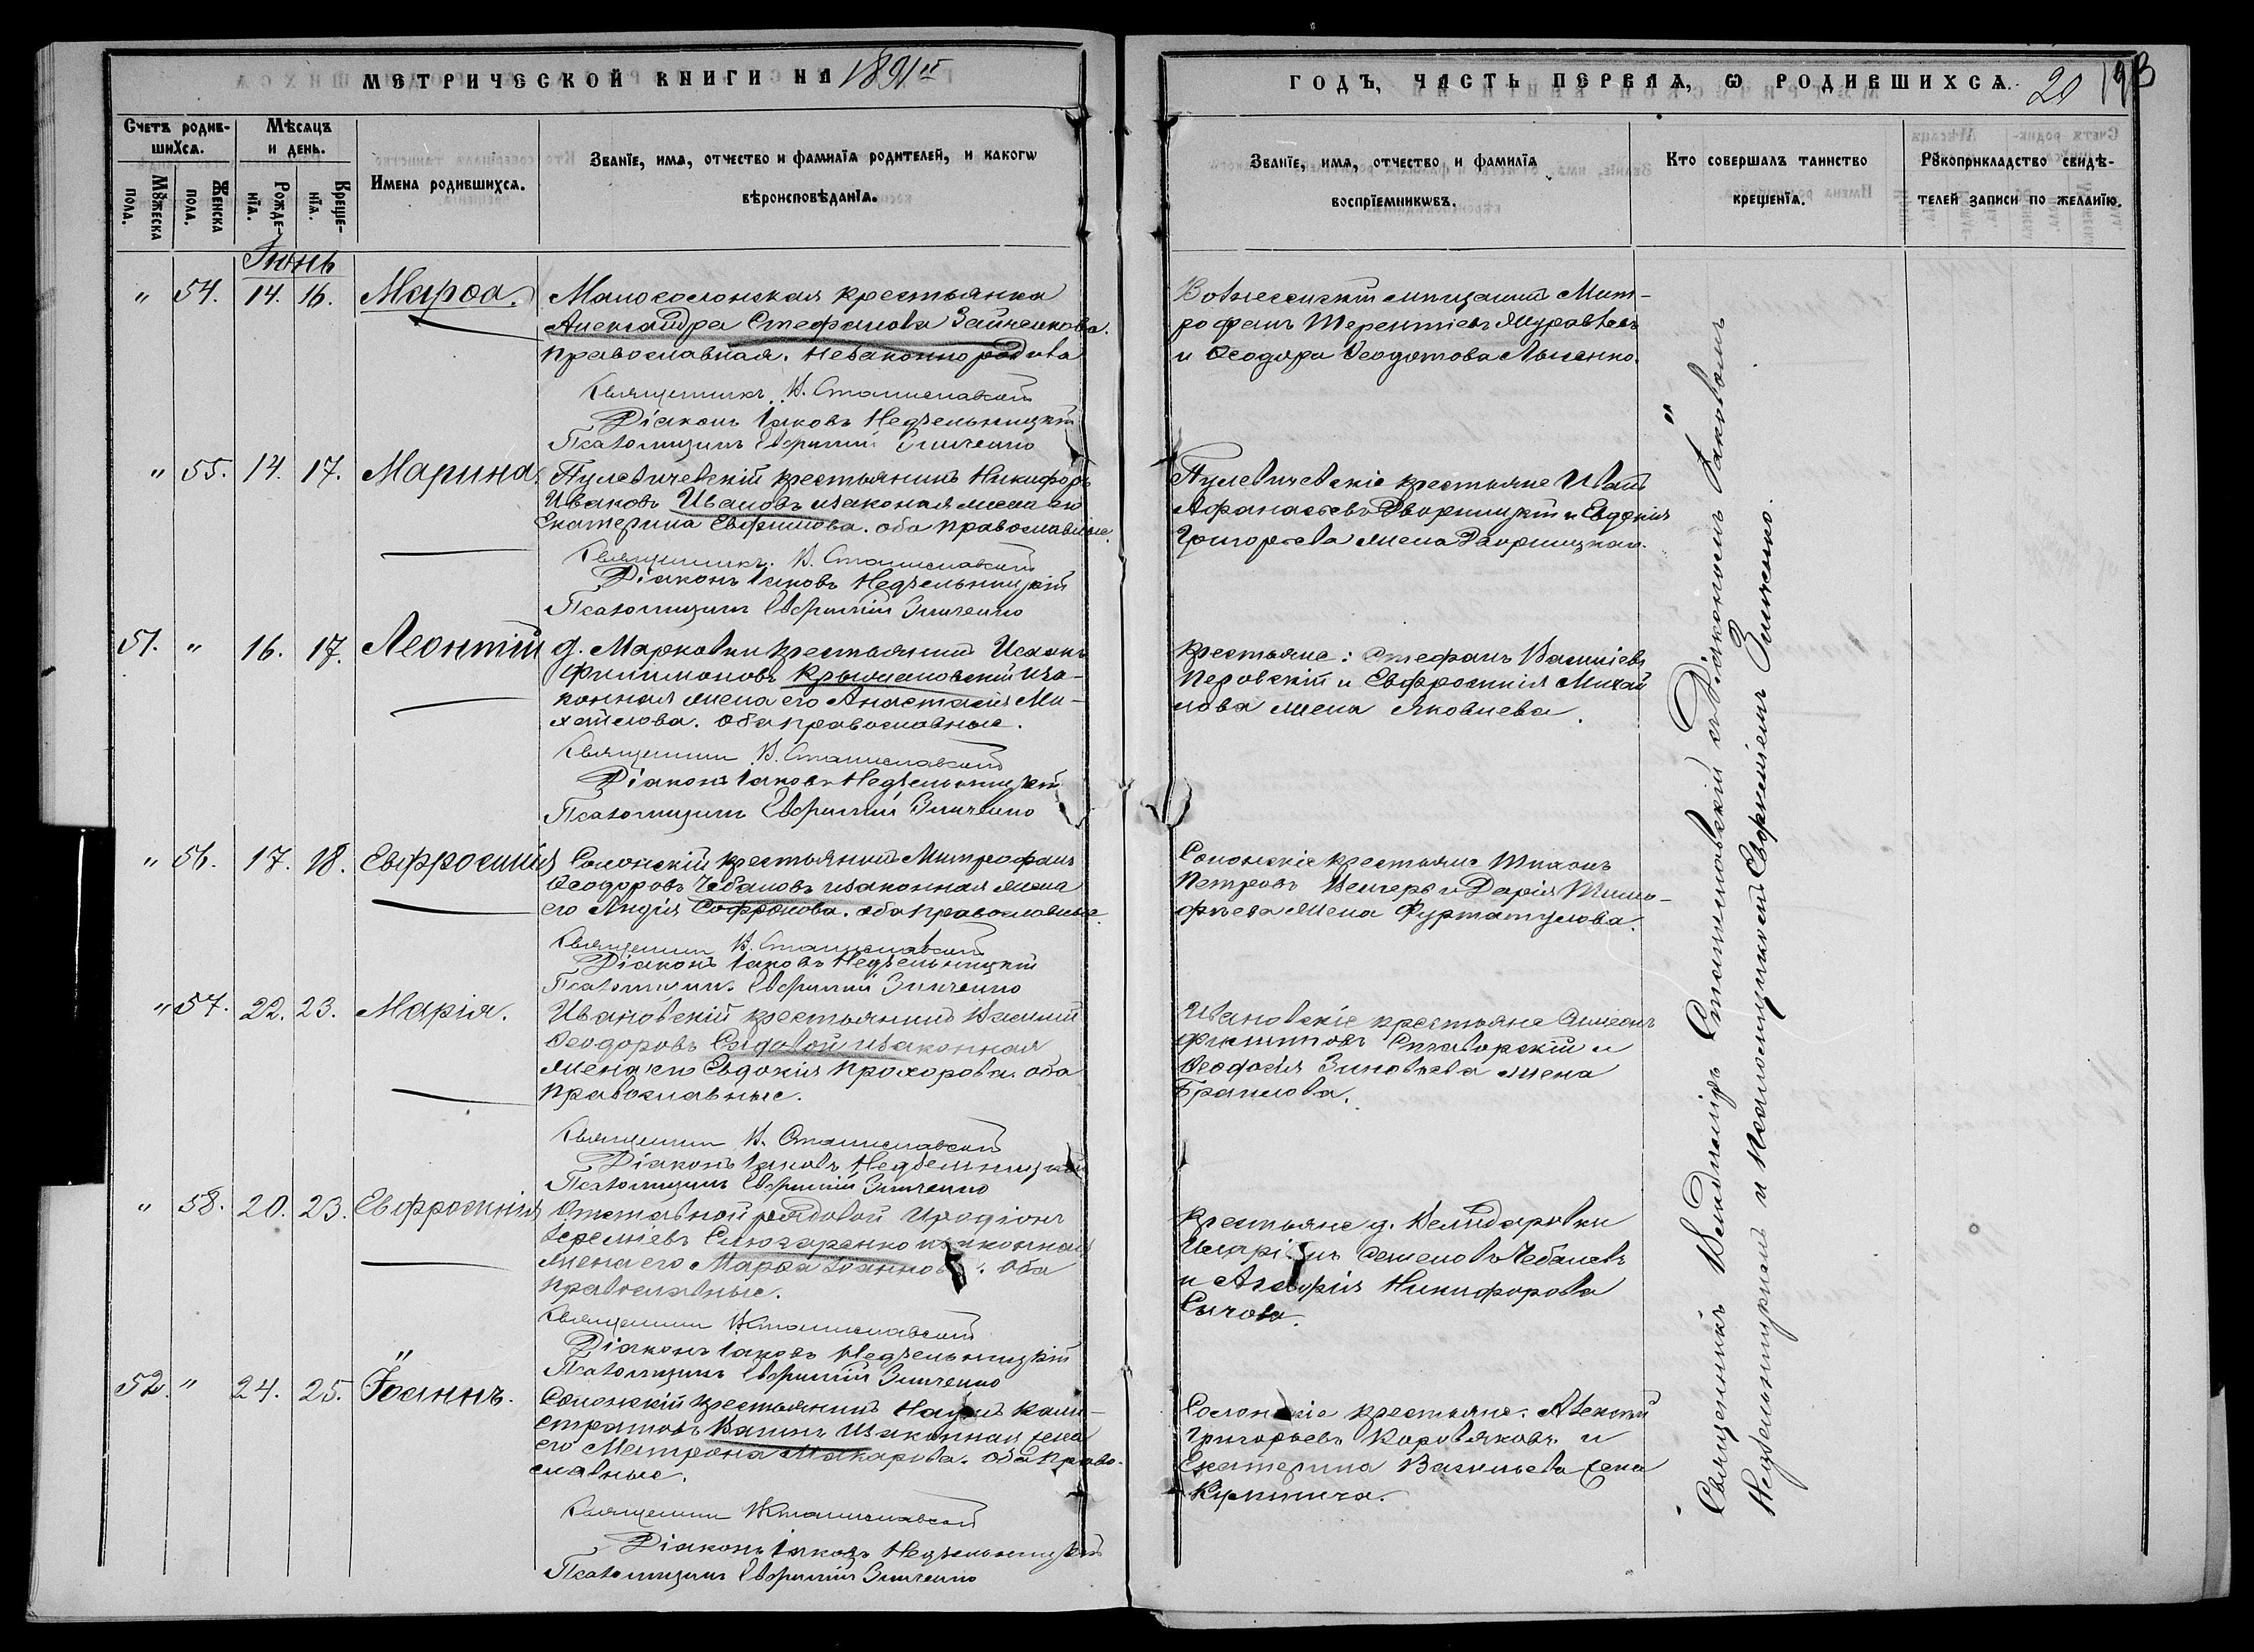 МЕТРИЧЕСКОЙ КНИГИ НА 1891й
Счетъ родив-
шихся.
Мѣсяцъ
и день.
Имена родившихся.
Званіе, имя, отчество и фамилія родителей, и какогѡ
вѣроисповѣданія.
Мꙋжеска
пола.
Женска
пола.
Рожде-
нія.
Креще-
нія.
Іюнь
" 54. 14. 16. Марѳа.
Малосолонская крестьянка
Александра Стефанова Зайченкова.
православная. незаконно родила
Священникъ В. Станиславскій
Діаконъ Іаковъ Недѣльницкій
Псаломщикъ Евфимій Зинченко
" 55. 14. 17. Марина.
Пулевичевскій крестьянинъ Никифоръ
Ивановъ изаконая жена его
Екатерина Евфимова. оба православные.
Священникъ. В. Станиславскій
Діаконъ Іаковъ Недѣльницкій
Псаломщикъ Евфимій Зинченко
51. " 16. 17. Леонтій
д. Марковки крестьянинъ Исаакъ
Филимоновъ иза-
конная жена его Анастасія Ми-
хайлова. оба православные.
Священникъ В. Станиславскій
Діаконъ Іаковъ Недѣльницкій
Псаломщикъ Евфимій Зинченко
" 56. 17. 18. Евфросинія
Солонскій крестьянинъ Митрофанъ
Ѳеодоровъ Чебановъ изаконная жена
его Лидія Софронова. оба православные.
Священникъ В. Станиславскій
Діаконъ Іаковъ Недѣльницкій
Псаломщикъ. Евфимій Зинченко
" 57. 22. 23. Марія.
Ивановскій крестьянинъ Василій
Ѳеодоровъ изаконная
жена его Евдокія Прохорова. оба
православные.
Священникъ В. Станиславскій
Діаконъ Іаковъ Недѣльницкій
Псаломщикъ Евфимій Зинченко
" 58. 20. 23. Евфросинія
Отставной рядовой Иродіонъ
Слюзаренко изаконная
жена его Марѳа Іоаннова. оба
православные.
Священникъ В. Станиславскій
Діаконъ Іаковъ Недѣльницкій
Псаломщикъ Евфимій Зинченко
52. " 24. 25. Іоаннъ.
Солонскій крестьянинъ Наумъ Кали-
стратовъ изаконная жена
его Матрона Макарова. оба право-
славные.
Священникъ В. Станиславскій
Діаконъ Іаковъ Недѣльницкій
Псаломщикъ Евфимій Зинченко
ГОДЪ, ЧАСТЬ ПЕРВАЯ, Ѡ РОДИВШИХСЯ. 20 193
Званіе, имя, отчество и фамилія
воспріемникѡвъ.
Кто совершалъ таинство
крещенія.
Рꙋкоприкладство свидѣ-
телей записи по желанію.
Вознесенскій мѣщанинъ Мит-
рофанъ Терентіевъ Муравьевъ
и Ѳеодора Ѳеодотова
Пулевичевскіе крестьяне Иванъ
Афанасьевъ Дворницкій и Евдокія
Григорьева жена Дворницкаго.
Крестьяне: Стефанъ Василіевъ
Перовскій и Евфросинія Михай
лова жена Яковлева.
Солонскіе крестьяне Тихонъ
Петровъ Венгеръ и Дарія Тимо-
фѣева жена Фуртатулова.
Ивановскіе крестьяне Симеонъ
Филипповъ и
Ѳеодосія Зиновьева жена
Браилова.
Крестьяне д.
Иларіонъ Семеновъ Чебановъ
и Никифорова
Сычова.
Солонскіе крестьяне: Алексій
Григорьевъ Коровяковъ и
Екатерина Васильева жена
Священникъ Станиславскій съ Діакономъ Іаковомъ
Недѣльницкимъ и Псаломщикомъ Евфиміемъ Зинченко.